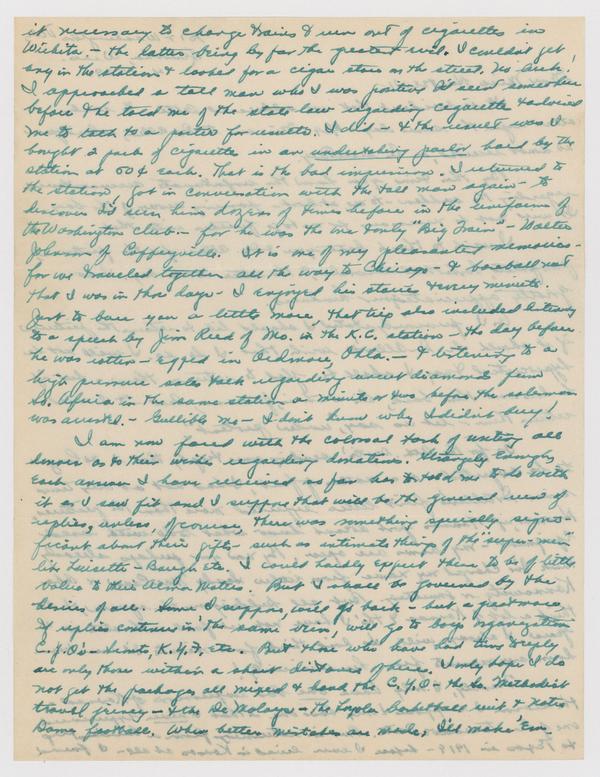 it necessary to change trains & run out of cigarettes in
Wichita - the latter being by far the greatest evil. I couldn't get
any in the station & looked for a cigar store on the street. No luck!
I approached a tall man who I was positive I'd seen somewhere
before & he told me of the state law regarding cigarettes & advised
me to talk to a porter for results. I did - & the result was I
bought 2 pack of cigarettes in an undertaking parlor hard by the
station at 60¢ each. That is the bad impression. I returned to
the station, got in conversation with the tall man again - to
discover I'd seen him dozens of times before in the uniform of
the Washington club - for he was the one & only "Big Train" - Walter
Johnson of Coffeyville. It is one of my pleasantest memories -
for we traveled together all the way to Chicago - & baseball nut
that I was in those days - I enjoyed his stories every minute.
Just to bore you a little more, that trip also included listening
to a speech by Jim Reed of Mo. in the K.C. station - the day before
he was rotten-egged in Ardmore, Okla. - & listening to a
high pressure sales talk regarding uncut diamonds from
So. Africa in the same station a minute or two before the salesman
was arrested. - Gullible me - I don't know why I didn't buy!
I am now faced with the colossal task of writing all
donors as to their wishes regarding donations. Strangely enough,
each answer I have received so far has told me to do with
it as I saw fit and I suppose that will be the general run of
replies, unless, of course, there was something specially signi-
ficant about their gifts - such as intimate things of the "super-men"
like Luisetti - Baugh etc. I could hardly expect them to be of little
value to their Alma Maters. But I shall be governed by the
desires of all. Some I suppose, will go back - but a good many
if replies continue in the same vein, will go to boys organization
C.Y.O's - Scouts, K.Y.F, etc. But those who have had time to reply
are only those within a short distance of here. I only hope I do
not get the packages all mixed & hand the C.Y.O - the So. Methodist
travel jersey - & the De Molays - the Loyola basketball suit & Notre
Dame football. When better mistakes are made, I'll make 'em.